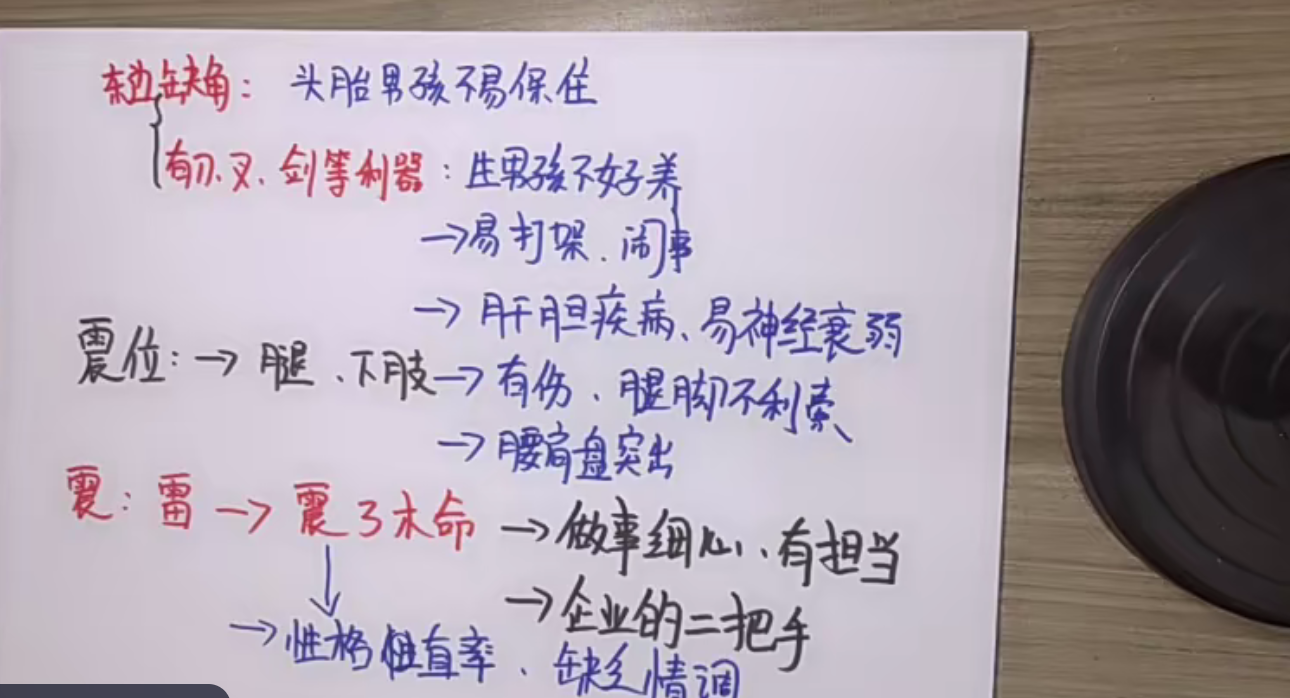 东边缺角：头胎男孩不易保住
有刀、叉、剑等利器：生男孩不好养
→易打架、闹事
→肝胆疾病、易神经衰弱
震位：→腿、下肢→有伤、腿脚不利索
→腰肩盘突出
震：雷→震3木命→做事细心、有担当
→企业的二把手
→性格直率、缺乏情调